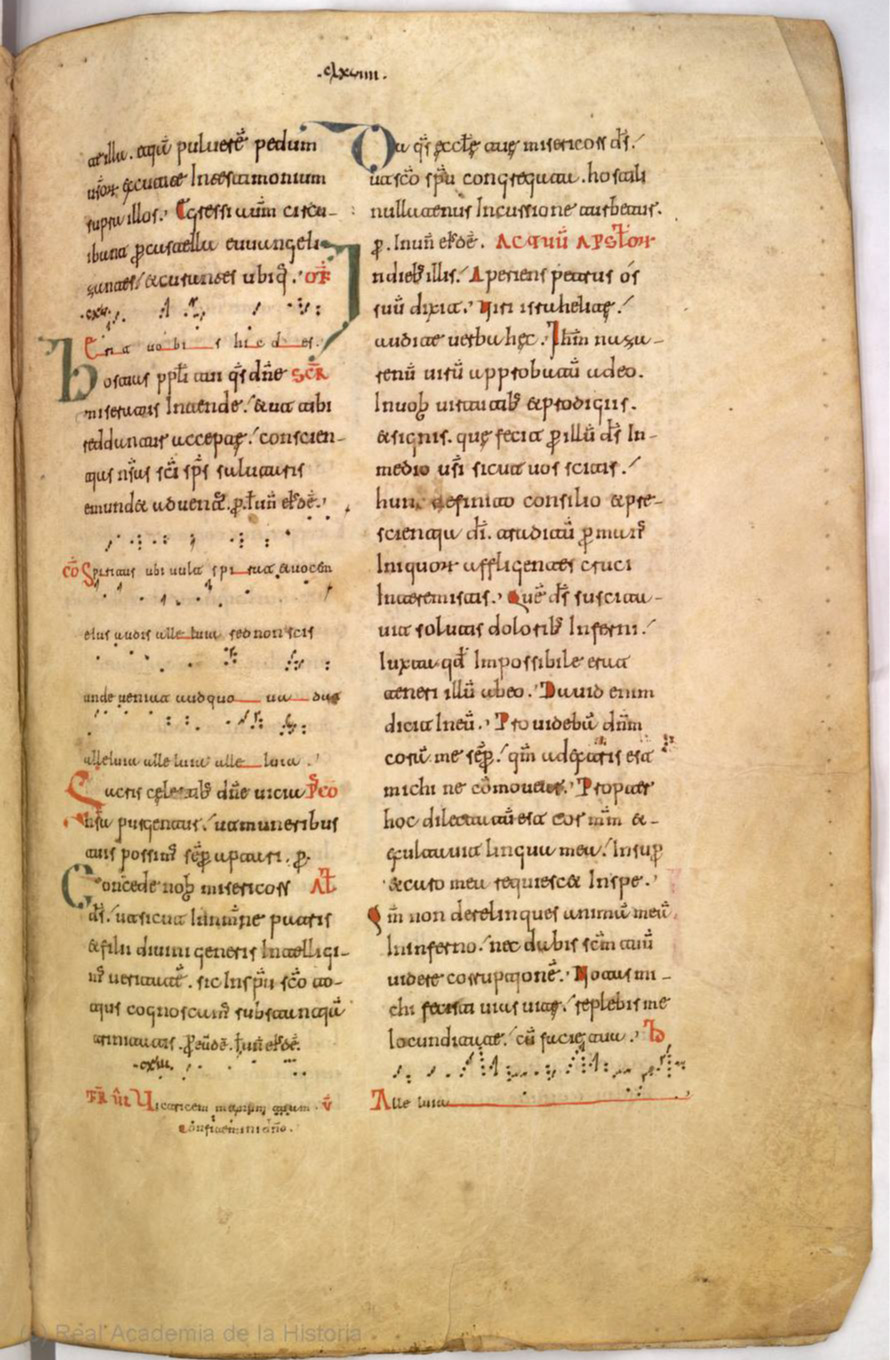 .clxviiii.
ab illa. atq̄ puluerē pedum
urōr excutite In testimonium
supra illos. Egressi aūm circu-
ibant p castella euuangeli-
zantes. & curantes ubiq̄. OF̄
.cxii.
Erit uobis hic dies.
Hostias ppłi tui q̄s dn̄e SCR̄
miseratus Intende. & ut tibi
reddantur acceptę. conscien-
tias nr̄as sc̄i sp̄s salutaris
emundet aduent;.
CŌ Spiritus ubi uult spirat & uocem
eius audis alleluia sed non scis
unde ueniat aut quo uadat
alleluia alleluia alleluia.
Sacris cęlestib; dn̄e uicia P̄CO
nr̄a purgentur. ut a muneribus
tuis possim; sēp aptari. p.
Concede nob misericors AŁ
d̄s. ut sicut In noīne patris
& filii diuini generis Intelligi-
m; ueritatē. sic In sp̄u sc̄o to-
tius cognoscam; substantiā
trinitatis.
FR̄ VI Uictricem manum tuam. V̄
Confitemini dn̄o.
Da q̄s ęcctę tuę misericors d̄s.
ut a sc̄o sp̄u congregata. hostili
nullatenus Incursione turbetur.
p. ACTUŪ AP̄STOŁOR
In dieb; illis. Aperiens petrus os
suū dixit. Uiri israhelitę.
audite uerba hęc. Ih̄m naza-
renū uirū approbatū a deo.
In uob uirtutib; & prodigiis.
& signis. quę fecit p illū d̄s In
medio ur̄i sicut uos scitis.
hunc definito consilio & pre-
scientia d̄i. traditū p man;
Iniquor affligentes cruci
Interemistis. Quē d̄s suscita-
uit solutis dolorib; Inferni.
Iuxta qd̄ Impossibile erat
teneri illū ab eo. Dauid enim
dicit In eū. Prouidebā dn̄m
corā me sēp. qm̄ a dextris est
michi ne cōmouear. Propter
hoc dilectatū est cor mm̄ &
exultauit lingua mea. Insup
& caro mea requiescet In spe.
Qm̄ non derelinques animā meā
In inferno. nec dabis sc̄m tuū
uidere corruptionē. Notas mi-
chi fecisti uias uitę. replebis me
Iocunditate. cū facie tua.
Alleluia
(c) Real Academia de la Historia